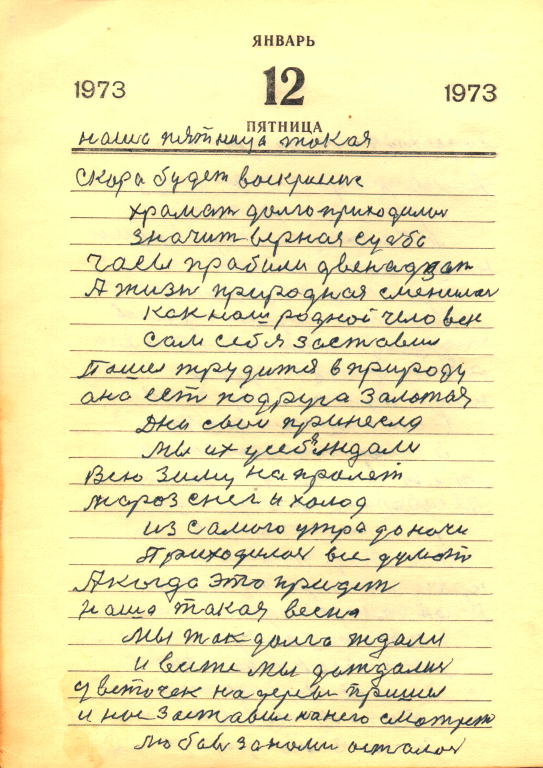 ЯНВАРЬ
1973 12 1973
ПЯТНИЦА
наша пятница такая
Скора будет воскришне
храмат долго приходилос
значит верная судба
Часы прабили двенадцат
А жизн природная сменилас
как наш родной человек
сам себя заставил
Пашел трудится в природу
ана ест подруга залотая
Дни свои принесла
мы их усебя ждали
Всю зиму на пролет
мароз снег и холод
из самого утра до ночи
Приходилос все думат
А когда это придет
наша такая весна
мы так долго ждали
и все же мы дождалис
цветочек на дереви пришел
и нас заставил на него смотрет
любов за нами осталос